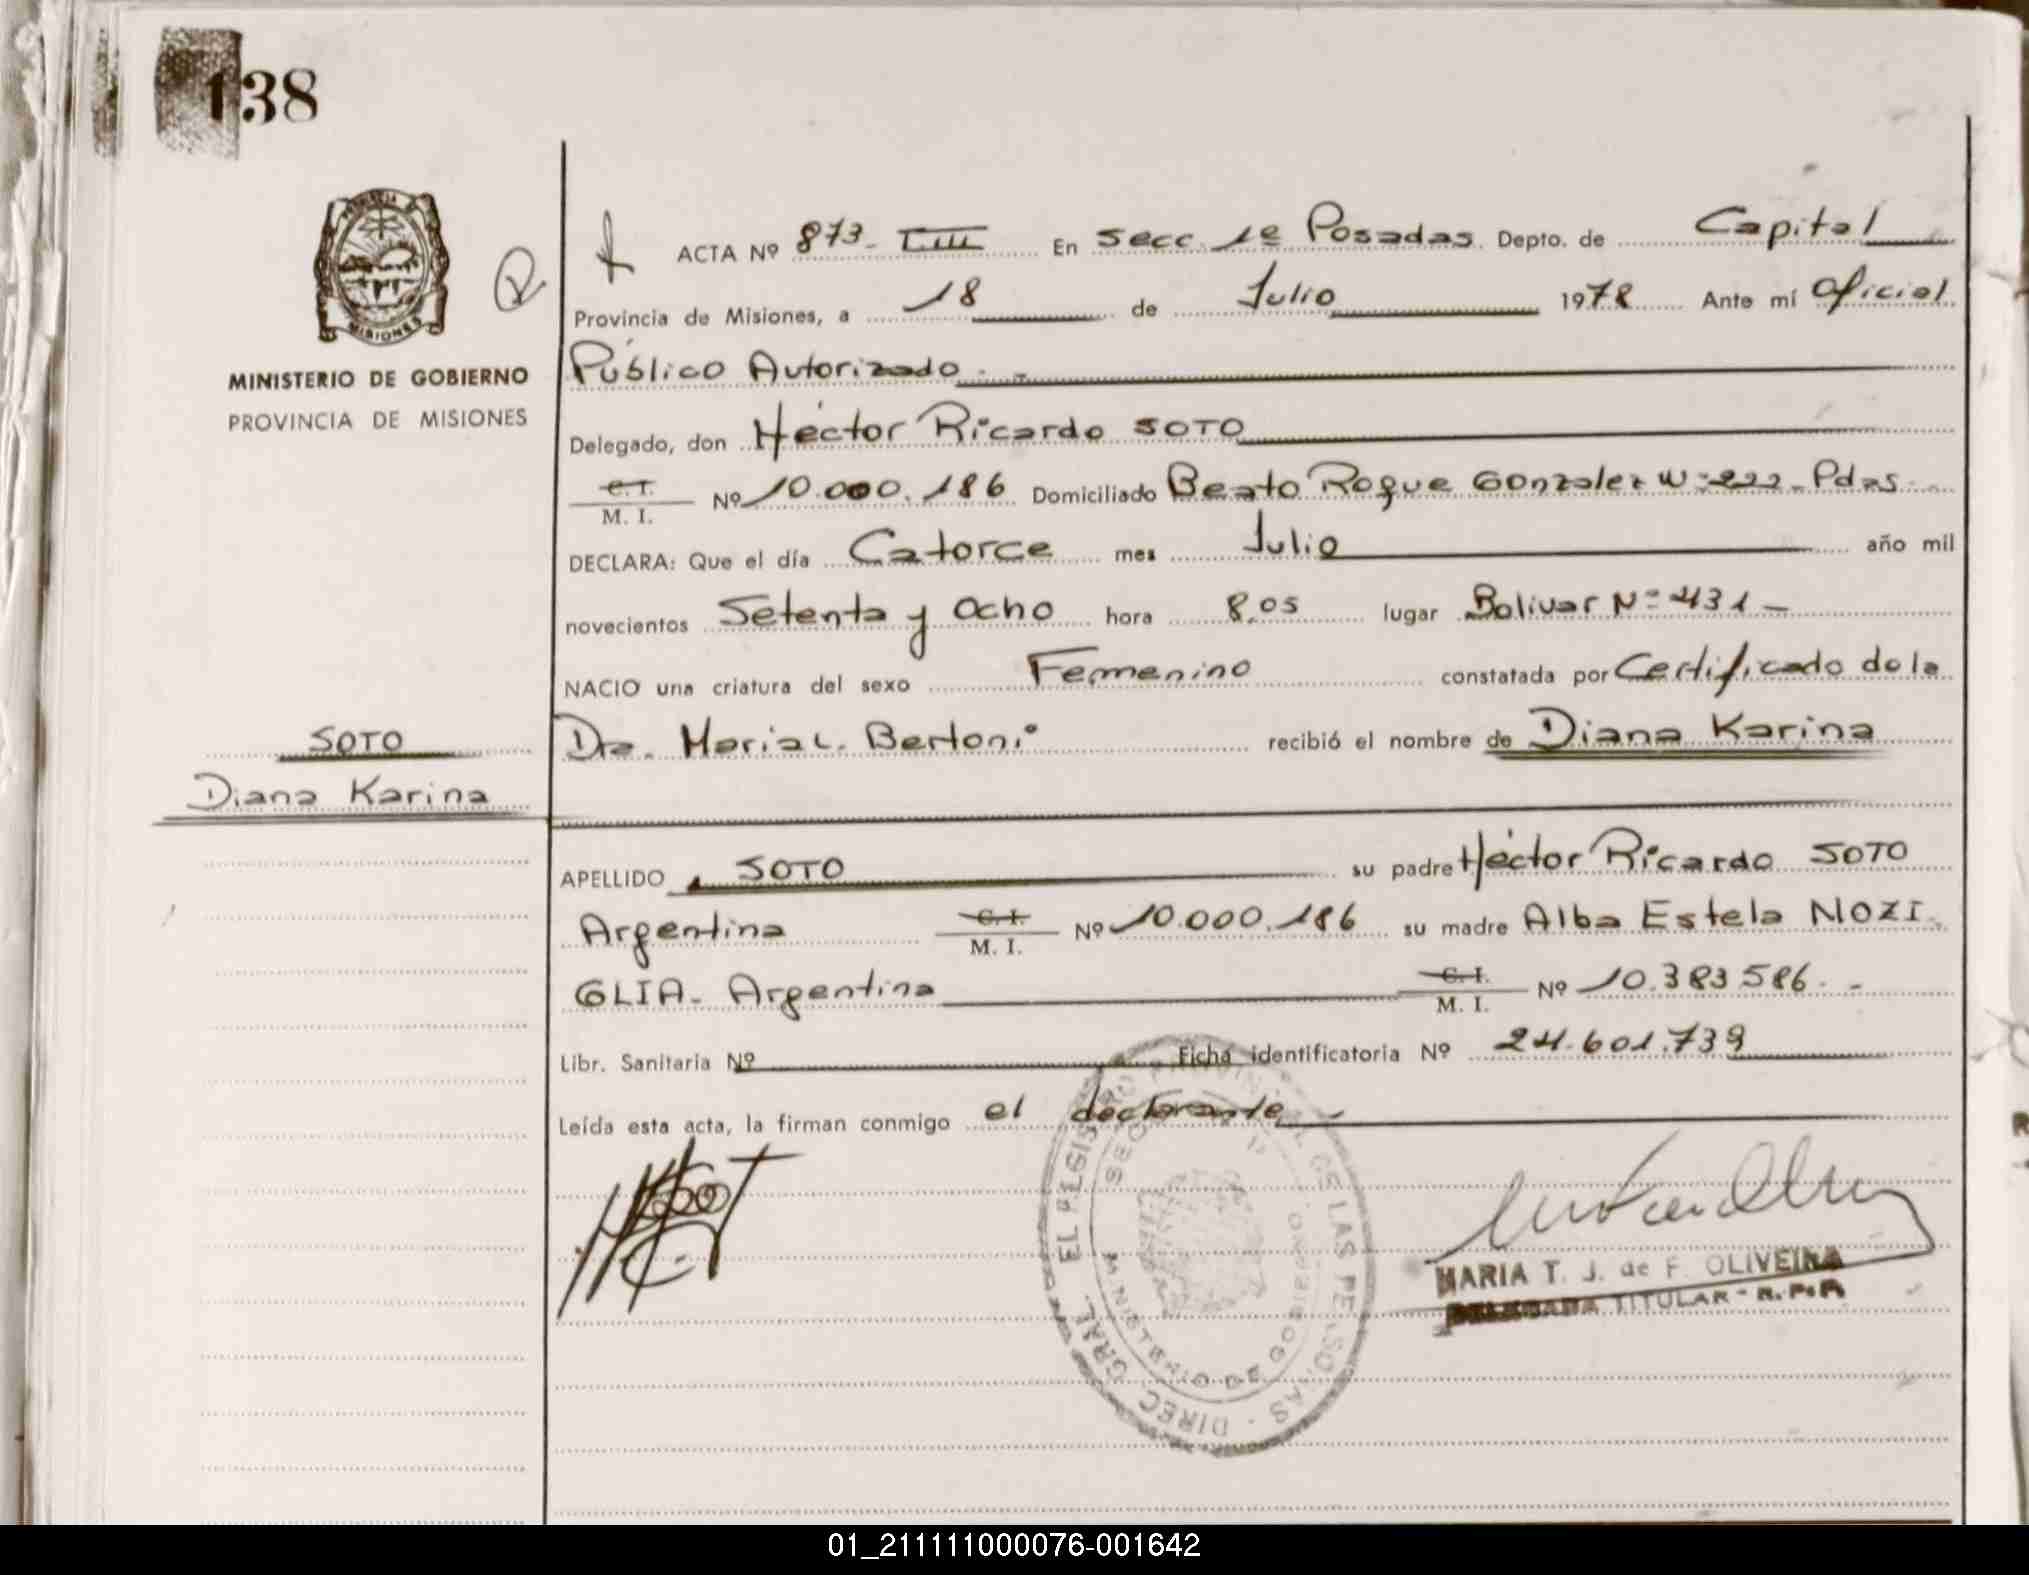 138
PROVINCIA DE
MISIONES
MINISTERIO DE GOBIERNO
PROVINCIA DE MISIONES
ACTA Nº 873- T. III En Secc. 1º Posadas. Depto. de Capital
Provincia de Misiones, a 18 de Julio 1978 Ante mí Oficial
Público Autorizado.-
Delegado, don Héctor Ricardo SOTO
C. I. M. I. Nº 10.000.186 Domiciliado Beato Roque Gonzalez Nº 222- Pdas.-
DECLARA: Que el día Catorce mes Julio año mil
novecientos Setenta y Ocho hora 8.05 lugar Bolivar Nº 431-
NACIO una criatura del sexo Femenino constatada por Certificado de la
Dra. Maria L. Bertoni recibió el nombre de Diana Karina
SOTO
Diana Karina
APELLIDO SOTO su padre Héctor Ricardo SOTO
Argentina C. I. M. I. Nº 10.000.186 su madre Alba Estela NOZI-
GLIA- Argentina C. I. M. I. Nº 10.383.586.-
Libr. Sanitaria Nº Ficha identificatoria Nº 24.601.739
Leída esta acta, la firman conmigo el declarante.-
DIREC. GRAL. EL REGISTRO PROVINCIAL DE LAS PERSONAS
MINISTERIO DE GOBIERNO
MARIA T. J. de F. OLIVEIRA
DELEGADA TITULAR - R.P.P.
01_211111000076-001642